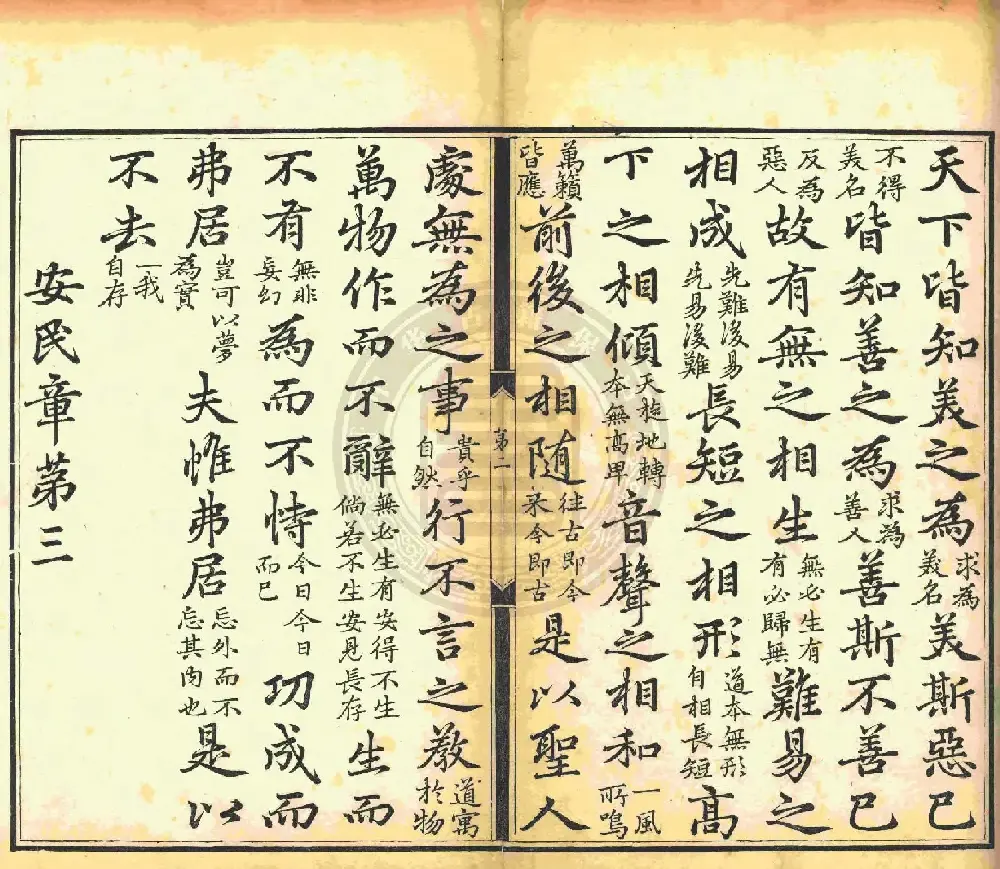 天下皆知美之為求為美名美斯惡已
不得美名皆知善之為求為善人善斯不善已
反為惡人故有無之相生無必生有有必歸無難易之
相成先難後易先易後難長短之相形道本無形自相長短高
下之相傾天旋地轉本無高卑音聲之相和一風所鳴
萬籟皆應前後之相隨往古即今來今即古是以聖人
第二
處無為之事貴乎自然行不言之教道寓於物
萬物作而不辭無必生有安得不生倘若不生安見長存生而
不有無非妄幻為而不恃今日今日而已功成而
弗居豈可以夢為實夫惟弗居忘外而不忘其內也是以
不去一我自存
安民章第三